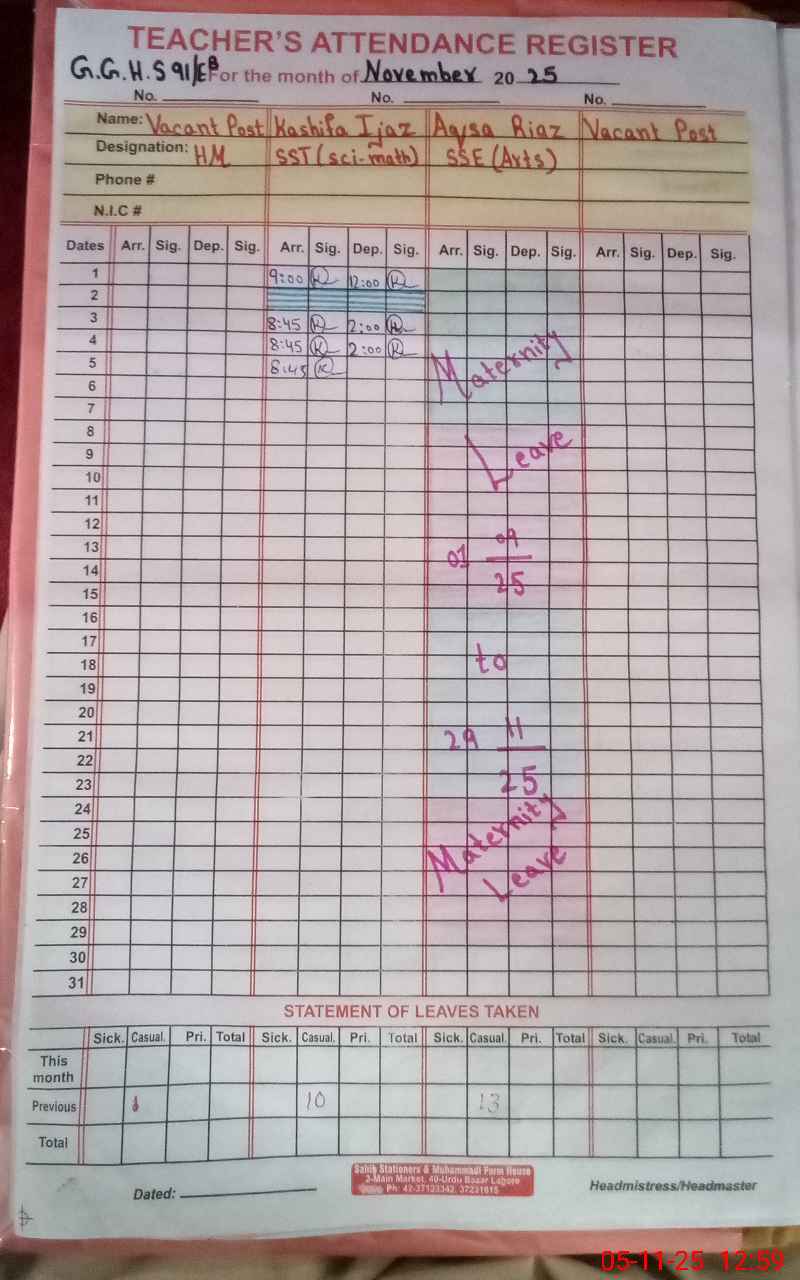 TEACHER'S ATTENDANCE REGISTER
G.G.H.S 91/EB For the month of November 20 25
No. No. No.
Name: Vacant Post Kashifa Ijaz Aqsa Riaz Vacant Post
Designation: HM SST (sci-math) SSE (Arts)
Phone #
N.I.C #
Dates Arr. Sig. Dep. Sig. Arr. Sig. Dep. Sig. Arr. Sig. Dep. Sig. Arr. Sig. Dep. Sig.
1 9:00 K 12:00 K
2
3 8:45 K 2:00 K
4 8:45 K 2:00 K
5 8:45 K
6 Maternity
7
8
9 Leave
10
11
12
13 01 09
14
15 25
16
17
18 to
19
20
21 29 11
22
23 25
24
25 Maternity
26
27 Leave
28
29
30
31
STATEMENT OF LEAVES TAKEN
Sick. Casual. Pri. Total Sick. Casual. Pri. Total Sick. Casual. Pri. Total Sick. Casual. Pri. Total
This month
Previous 10 13
Total
Sahib Stationers & Muhammadi Form House
2-Main Market, 40-Urdu Bazar Lahore
Ph: 42-37123342, 37231615
Dated: Headmistress/Headmaster
05-11-25 12:59